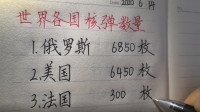 世界各国核弹数量
1.俄罗斯 6850枚
2.美国 6450枚
3.法国 300枚